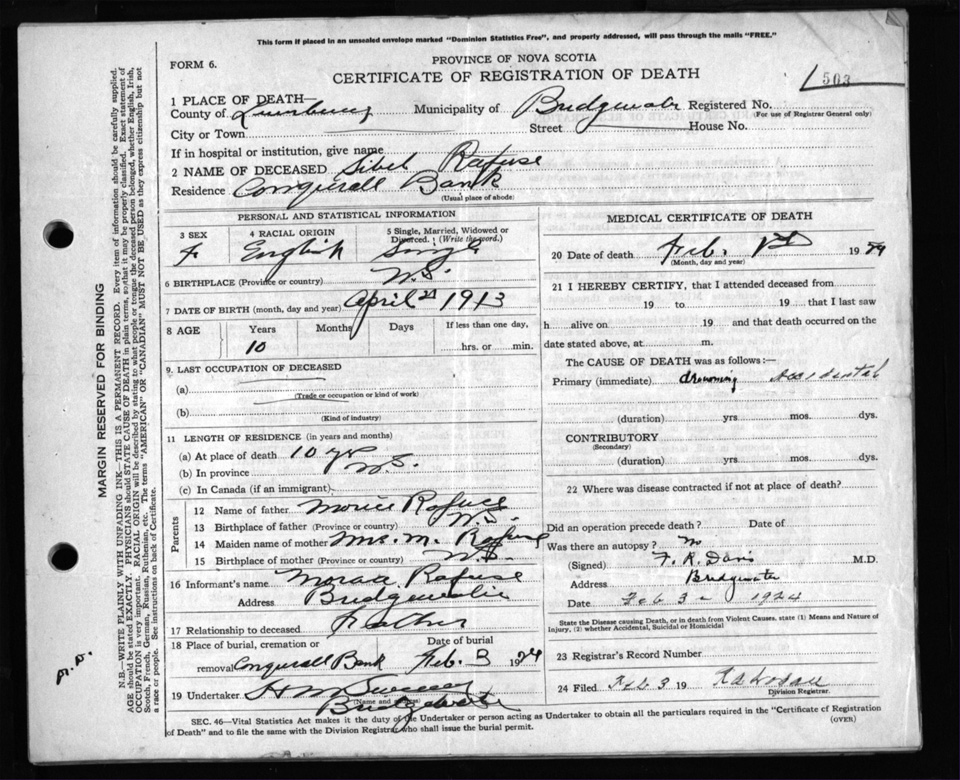 This form if placed in an unsealed envelope marked "Dominion Statistics Free", and properly addressed, will pass through the mails "FREE."
PROVINCE OF NOVA SCOTIA
FORM 6.
CERTIFICATE OF REGISTRATION OF DEATH
503
1 PLACE OF DEATH—
County of Lunenburg Municipality of Bridgewater Registered No.
(For use of Registrar General only)
City or Town Street House No.
If in hospital or institution, give name
2 NAME OF DECEASED Sibel Rafuse
Residence Conquerall Bank
(Usual place of abode)
PERSONAL AND STATISTICAL INFORMATION
3 SEX 4 RACIAL ORIGIN 5 Single, Married, Widowed or Divorced. (Write the word.)
F English Single
6 BIRTHPLACE (Province or country) N.S.
7 DATE OF BIRTH (month, day and year) April 21 1913
8 AGE Years Months Days If less than one day,
10 hrs. or min.
9. LAST OCCUPATION OF DECEASED
(a)
(Trade or occupation or kind of work)
(b)
(Kind of industry)
11 LENGTH OF RESIDENCE (in years and months)
(a) At place of death 10 yr
(b) In province N.S.
(c) In Canada (if an immigrant)
Parents
12 Name of father Rafuse
13 Birthplace of father (Province or country) N.S.
14 Maiden name of mother Mrs. M. Rafuse
15 Birthplace of mother (Province or country) N.S.
16 Informant's name Rafuse
Address Bridgewater
17 Relationship to deceased Father
18 Place of burial, cremation or Date of burial
removal Conquerall Bank Feb. 3 1924
19 Undertaker
(Name and address)
Bridgewater
MEDICAL CERTIFICATE OF DEATH
20 Date of death Feb. 1st 1924
(Month, day and year)
21 I HEREBY CERTIFY, that I attended deceased from
19 to 19 that I last saw
h alive on 19 and that death occurred on the
date stated above, at m.
The CAUSE OF DEATH was as follows:—
Primary (immediate) drowning Accidental
(duration) yrs. mos. dys.
CONTRIBUTORY
(Secondary)
(duration) yrs. mos. dys.
22 Where was disease contracted if not at place of death?
Did an operation precede death? Date of
Was there an autopsy? no
(Signed) F. R. Davis M.D.
Address Bridgewater
Date Feb 3 1924
State the Disease causing Death, or in death from Violent Causes, state (1) Means and Nature
of Injury, (2) whether Accidental, Suicidal or Homicidal
23 Registrar's Record Number
24 Filed Feb 3 19
Division Registrar.
SEC. 46—Vital Statistics Act makes it the duty of the Undertaker or person acting as Undertaker to obtain all the particulars required in the "Certificate of Registration
of Death" and to file the same with the Division Registrar who shall issue the burial permit.
(OVER)
MARGIN RESERVED FOR BINDING
N.B.—WRITE PLAINLY WITH UNFADING INK—THIS IS A PERMANENT RECORD. Every item of information should be carefully supplied.
AGE should be stated EXACTLY. PHYSICIANS should STATE CAUSE OF DEATH in plain terms, so that it may be properly classified. Exact statement of
OCCUPATION is very important. RACIAL ORIGIN will be described by stating to what people or tongue the deceased person belonged, whether English, Irish,
Scotch, French, German, Russian, Ruthenian, etc. The terms "AMERICAN" OR "CANADIAN" MUST NOT BE USED as they express citizenship but not
a race or people. See instructions on back of Certificate.